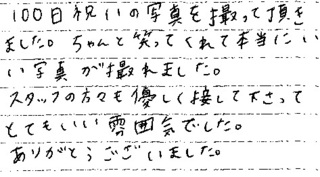 100日祝いの写真を撮って頂き
ました。ちゃんと笑ってくれて本当にい
い写真が撮れました。
スタッフの方々も優しく接して下さって
とてもいい雰囲気でした。
ありがとうございました。